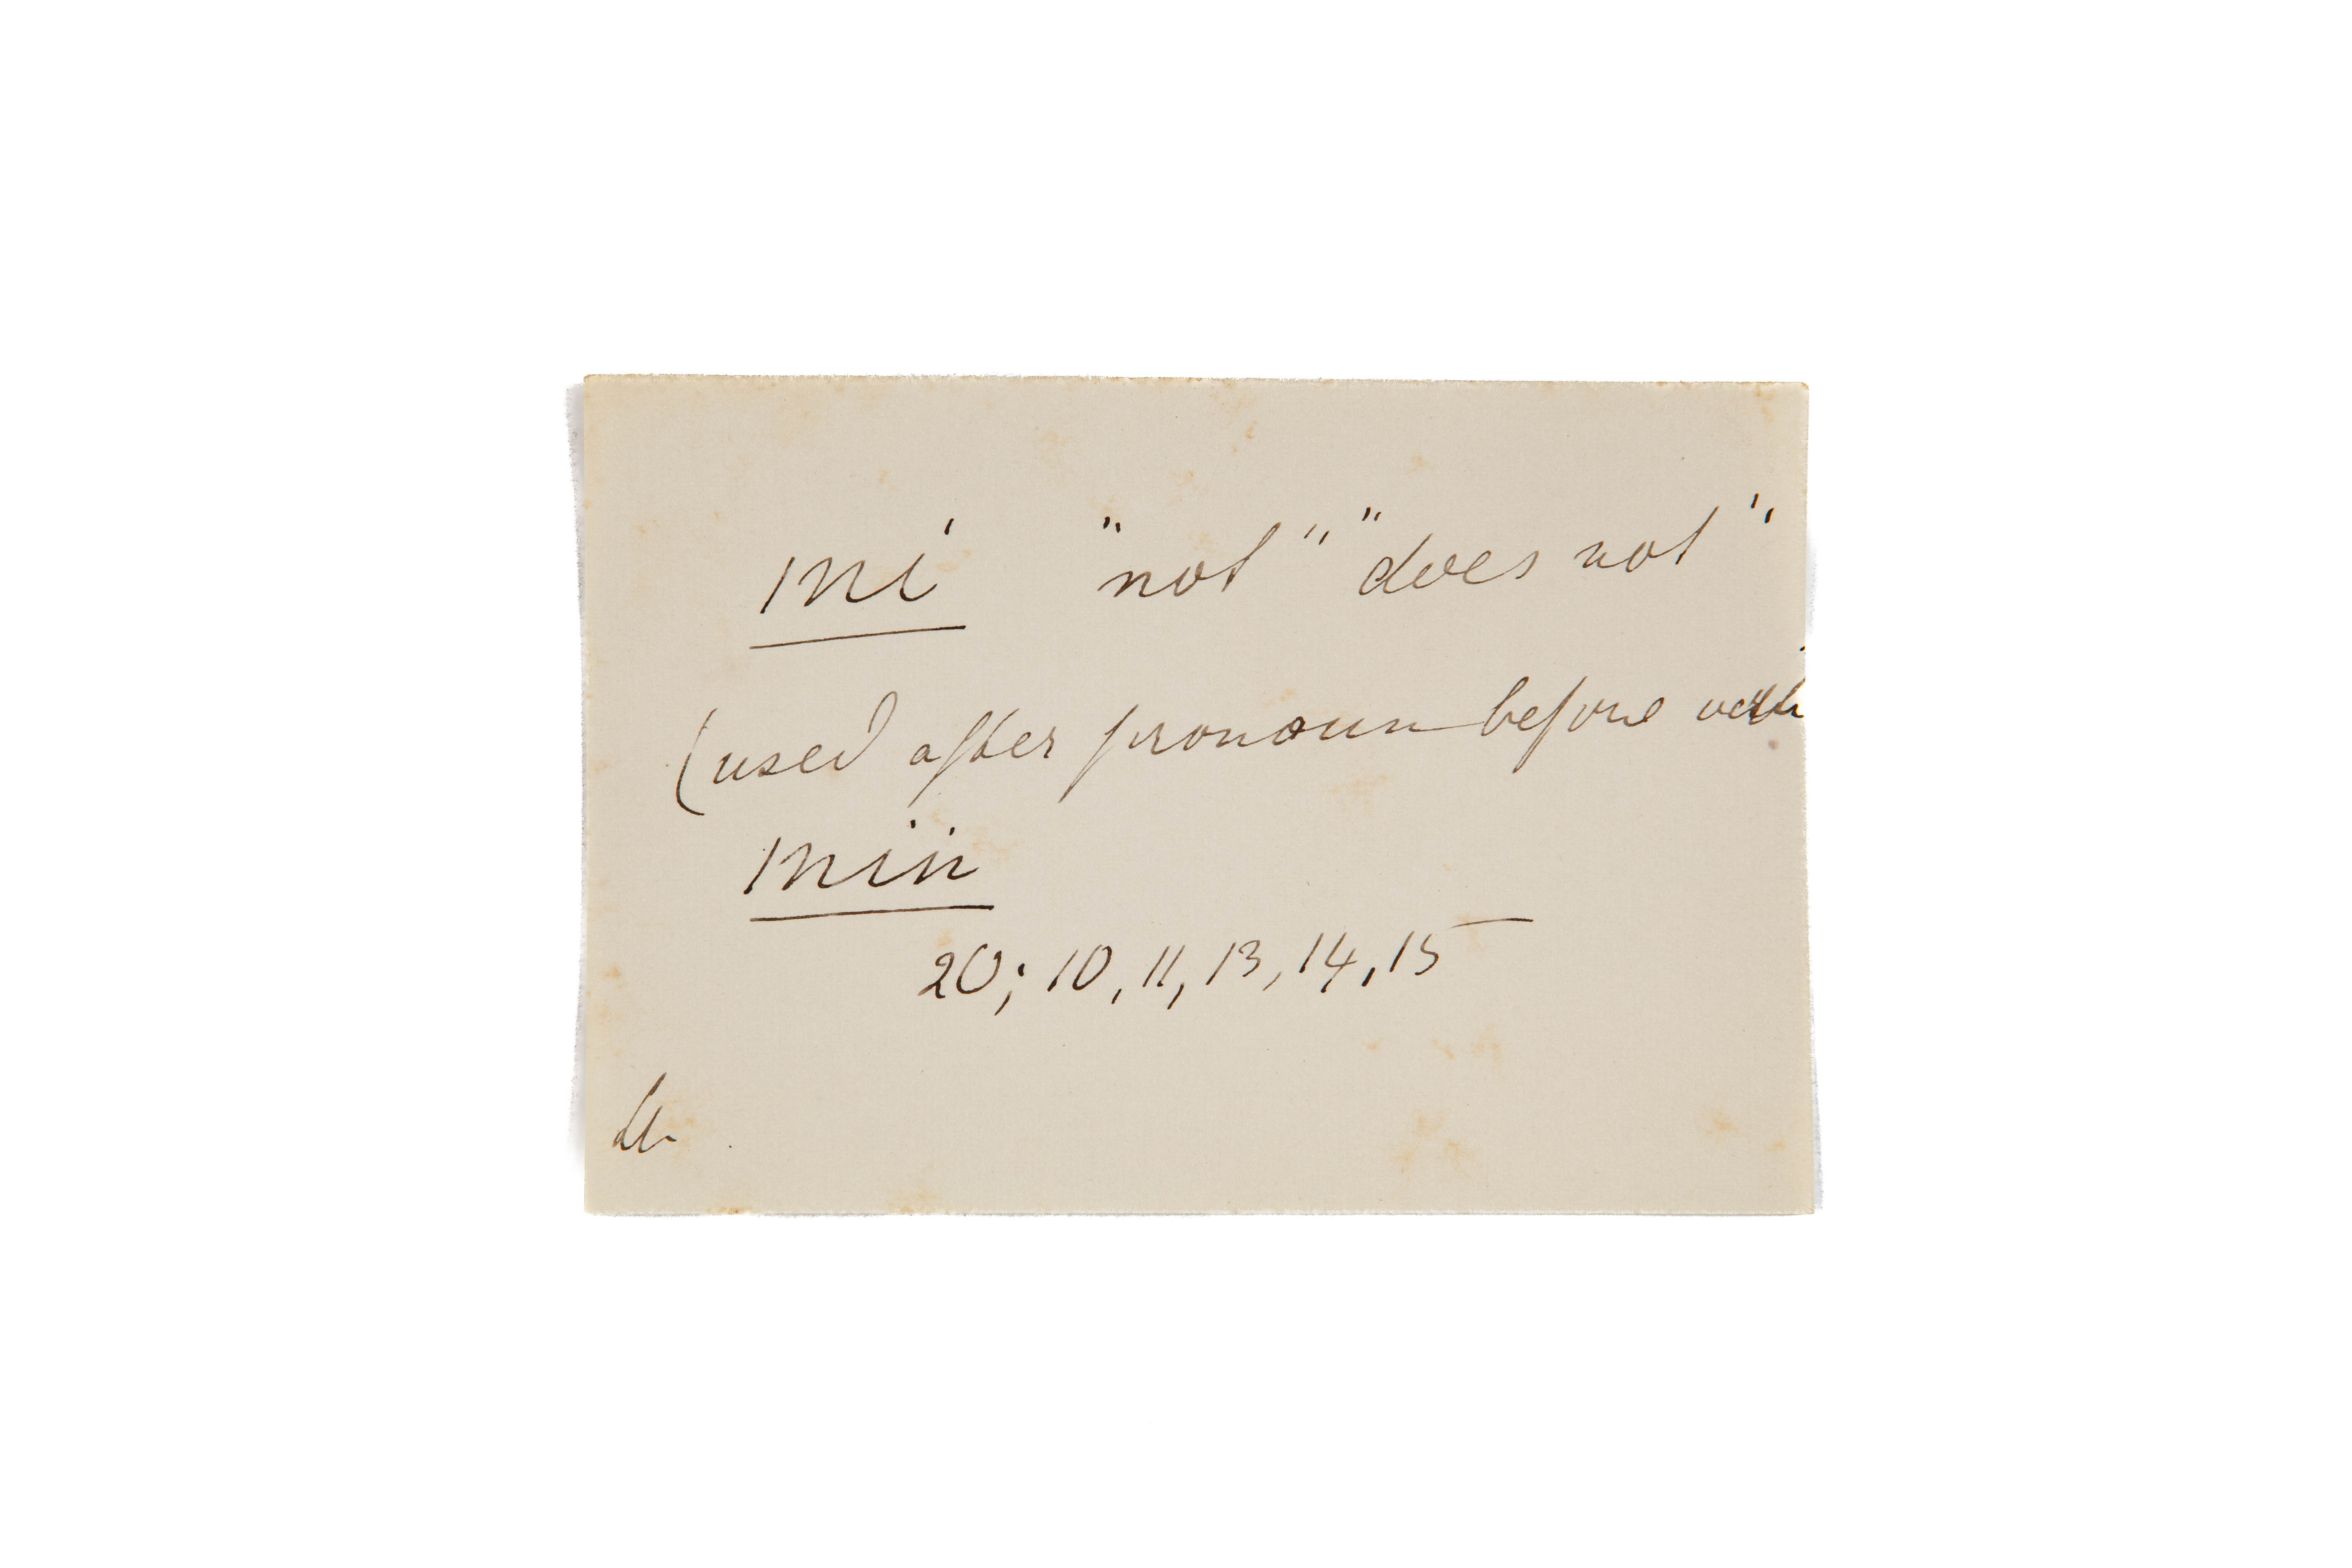 mi "not" "does not"
(used after pronoun before verb
min
20; 10, 11, 13, 14, 15